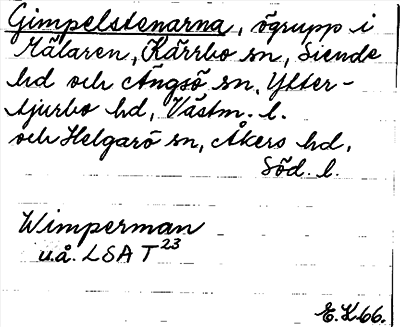 Gimpelstenarna, ögrupp i
Mälaren, Kärrbo sn, Siende
hd och Ängsö sn, Ytter-
tjurbo hd, Västm. l.
och Helgarö sn, Åkers hd,
Söd. l.
Wimperman
u.å. LSA T 23
E.K 66.